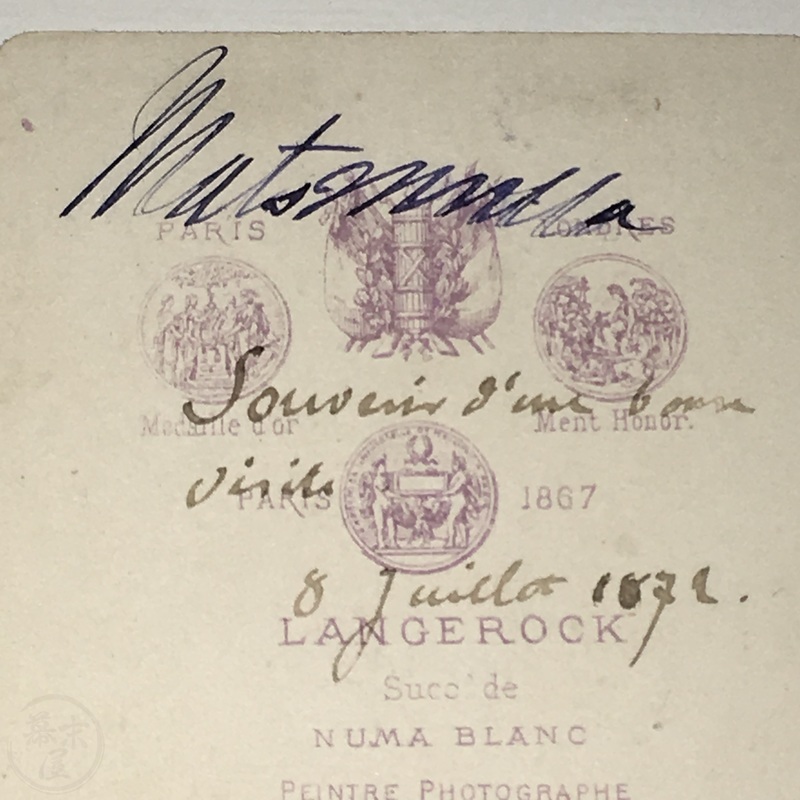 Matsmulla
PARIS LONDRES
Souvenir d'une bonne
Medaille d'or Ment Honor.
visite
PARIS 1867
8 Juillet 1872.
LANGEROCK
Succr de
NUMA BLANC
PEINTRE PHOTOGRAPHE
幕末屋